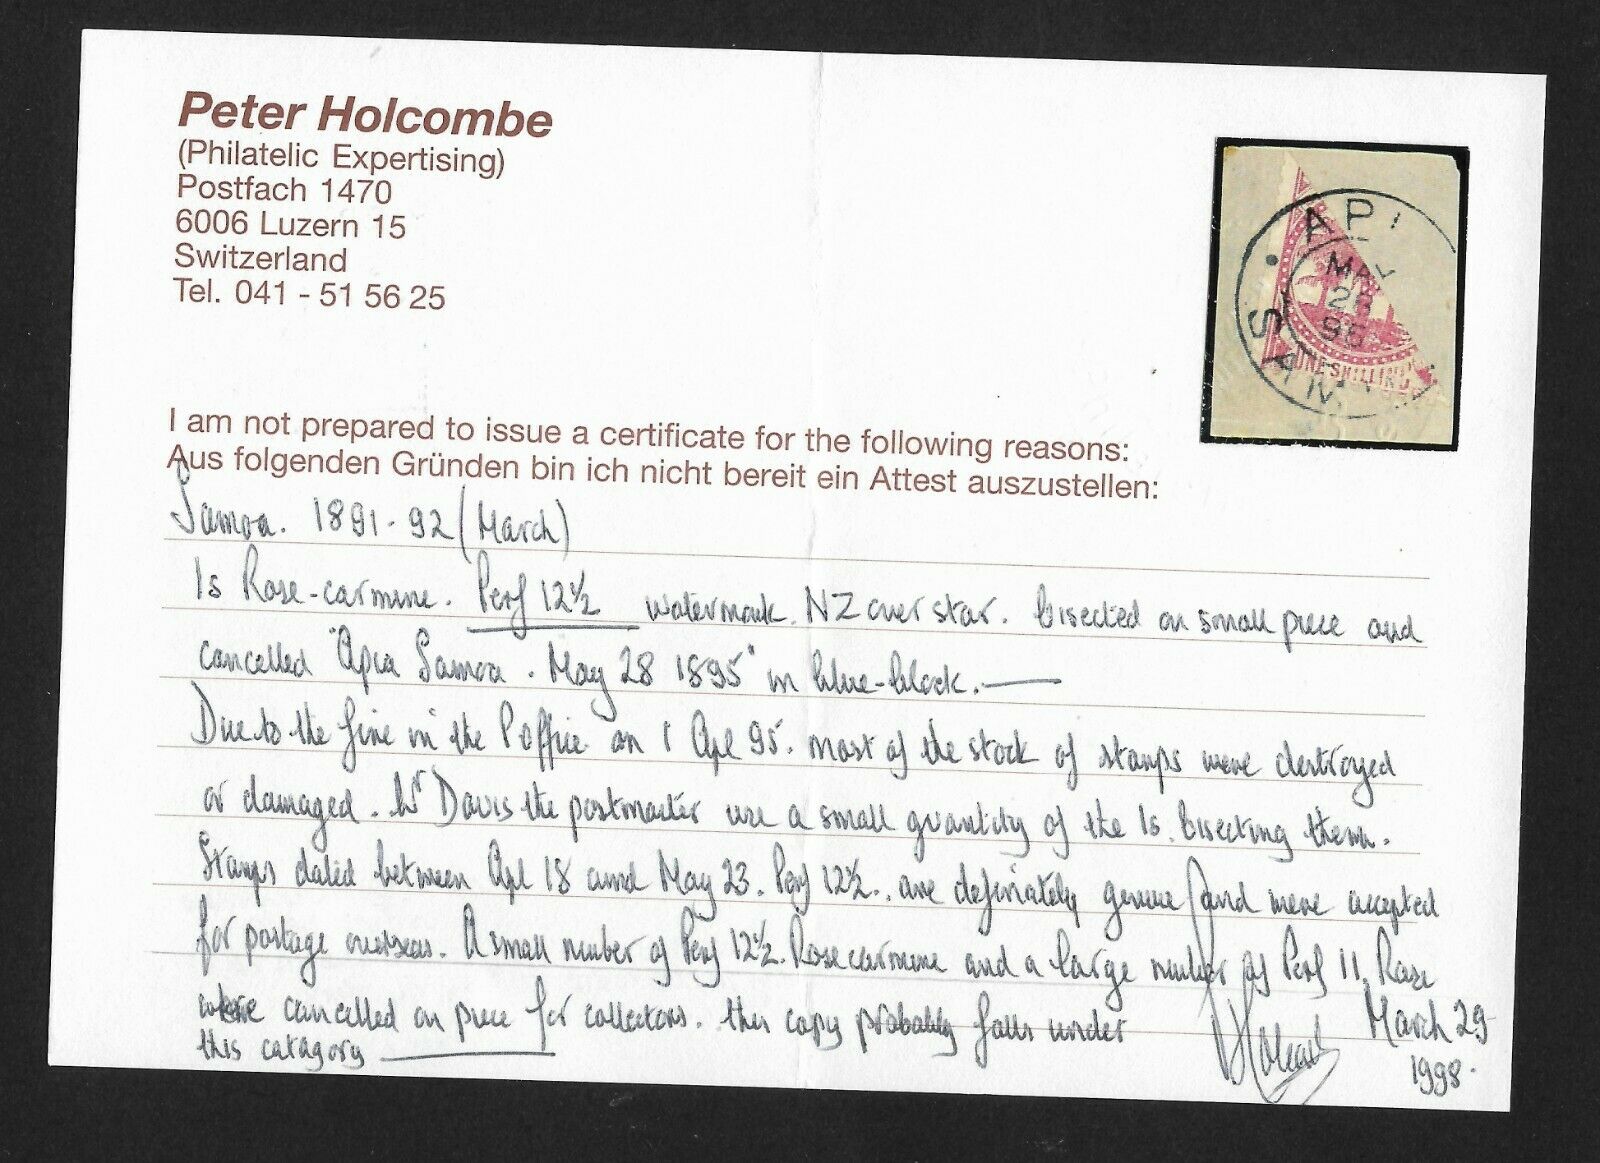 Peter Holcombe
(Philatelic Expertising)
Postfach 1470
6006 Luzern 15
Switzerland
Tel. 041 - 51 56 25
API
MAY
28
95
SAM
ONE SHILLING
I am not prepared to issue a certificate for the following reasons:
Aus folgenden Gründen bin ich nicht bereit ein Attest auszustellen:
Samoa. 1891-92 (March)
1s Rose-carmine. Perf 12½ watermark. NZ over star. bisected on small piece and
cancelled "Apia Samoa. May 28 1895" in blue-black.
Due to the fire in the P office on 1 Apl 95. most of the stock of stamps were destroyed
or damaged. Mr Davis the postmaster use a small quantity of the 1s. bisecting them.
Stamps dated between Apl 18 and May 23. Perf 12½. are definately genuine and were accepted
for postage overseas. A small number of Perf 12½. Rose carmine and a large number of Perf 11. Rose
were cancelled on piece for collectors. this copy probably falls under
this catagory
March 29
1998.